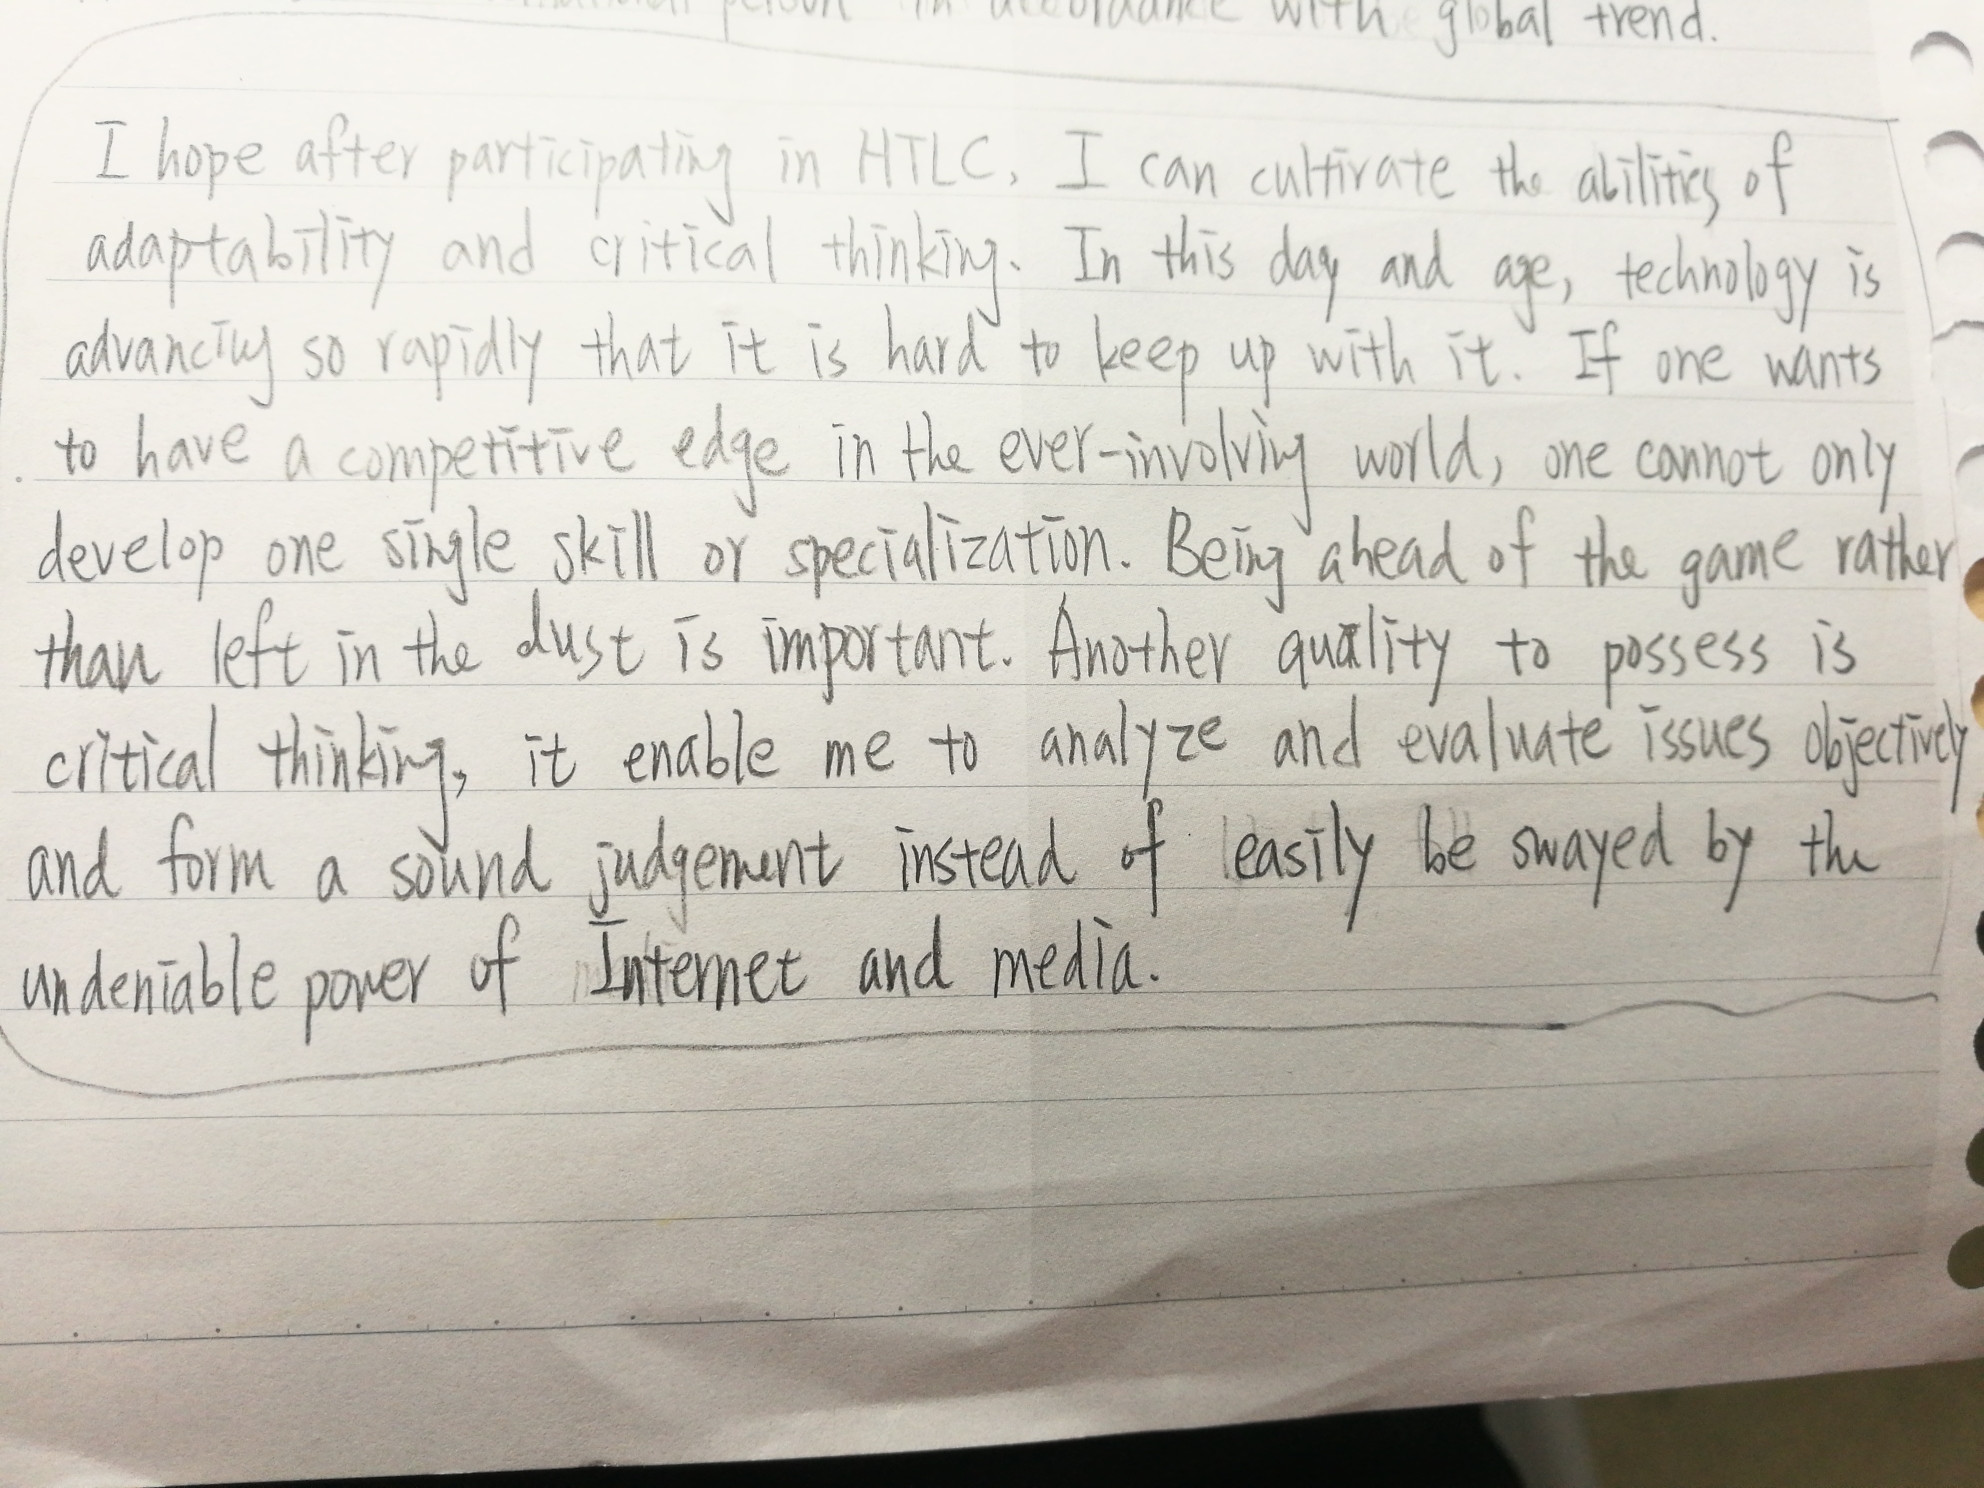 person in accordance with global trend.
I hope after participating in HTLC, I can cultivate the abilities of
adaptability and critical thinking. In this day and age, technology is
advancing so rapidly that it is hard to keep up with it. If one wants
to have a competitive edge in the ever-involving world, one cannot only
develop one single skill or specialization. Being ahead of the game rather
than left in the dust is important. Another quality to possess is
critical thinking, it enable me to analyze and evaluate issues objectively
and form a sound judgement instead of easily be swayed by the
undeniable power of Internet and media.